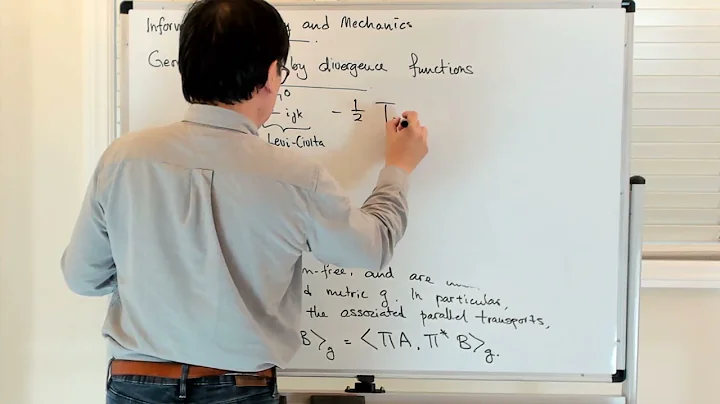 Infor and Mechanics
Geo by divergence functions
0
ijk - 1/2 T
Levi-Civita
n-free, and are
metric g. In particular,
the associated parallel transports,
B⟩g = ⟨ΠA, Π* B⟩g.